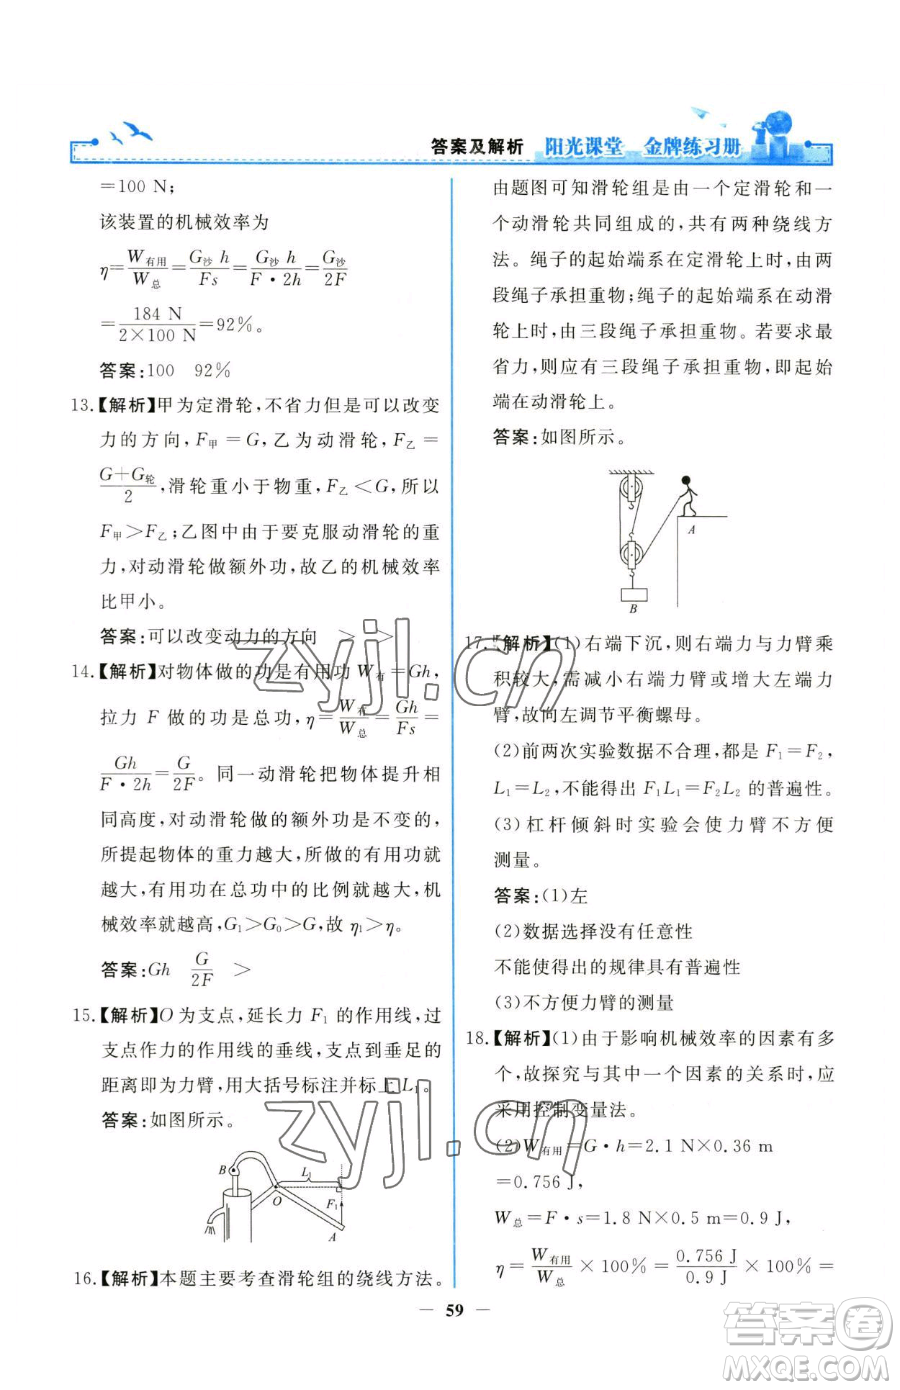 答案及解析 阳光课堂 金牌练习册
=100 N;
该装置的机械效率为
η=W有用/W总=G沙 h/Fs=G沙 h/F·2h=G沙/2F
=184 N/2×100 N=92%。
答案:100 92%
13.【解析】甲为定滑轮,不省力但是可以改变
力的方向,F甲=G,乙为动滑轮,F乙=
G+G轮/2,滑轮重小于物重,F乙<G,所以
F甲>F乙;乙图中由于要克服动滑轮的重
力,对动滑轮做额外功,故乙的机械效率
比甲小。
答案:可以改变动力的方向 > >
14.【解析】对物体做的功是有用功 W有=Gh,
拉力 F 做的功是总功,η=W有/W总=Gh/Fs=
Gh/F·2h=G/2F。同一动滑轮把物体提升相
同高度,对动滑轮做的额外功是不变的,
所提起物体的重力越大,所做的有用功就
越大,有用功在总功中的比例就越大,机
械效率就越高,G₁>G₀>G,故 η₁>η。
答案:Gh G/2F >
15.【解析】O为支点,延长力 F₁ 的作用线,过
支点作力的作用线的垂线,支点到垂足的
距离即为力臂,用大括号标注并标上L₁。
答案:如图所示。
B
L₁
O
F₁
A
16.【解析】本题主要考查滑轮组的绕线方法。
由题图可知滑轮组是由一个定滑轮和一
个动滑轮共同组成的,共有两种绕线方
法。绳子的起始端系在定滑轮上时,由两
段绳子承担重物;绳子的起始端系在动滑
轮上时,由三段绳子承担重物。若要求最
省力,则应有三段绳子承担重物,即起始
端在动滑轮上。
答案:如图所示。
A
B
17.【解析】(1)右端下沉,则右端力与力臂乘
积较大,需减小右端力臂或增大左端力
臂,故向左调节平衡螺母。
(2)前两次实验数据不合理,都是 F₁=F₂,
L₁=L₂,不能得出 F₁L₁=F₂L₂ 的普遍性。
(3)杠杆倾斜时实验会使力臂不方便
测量。
答案:(1)左
(2)数据选择没有任意性
不能使得出的规律具有普遍性
(3)不方便力臂的测量
18.【解析】(1)由于影响机械效率的因素有多
个,故探究与其中一个因素的关系时,应
采用控制变量法。
(2)W有用=G·h=2.1 N×0.36 m
=0.756 J,
W总=F·s=1.8 N×0.5 m=0.9 J,
η=W有用/W总×100%=0.756 J/0.9 J×100%=
— 59 —
zyjl.cn
zyjl.cn
答案圈
MXQE.COM